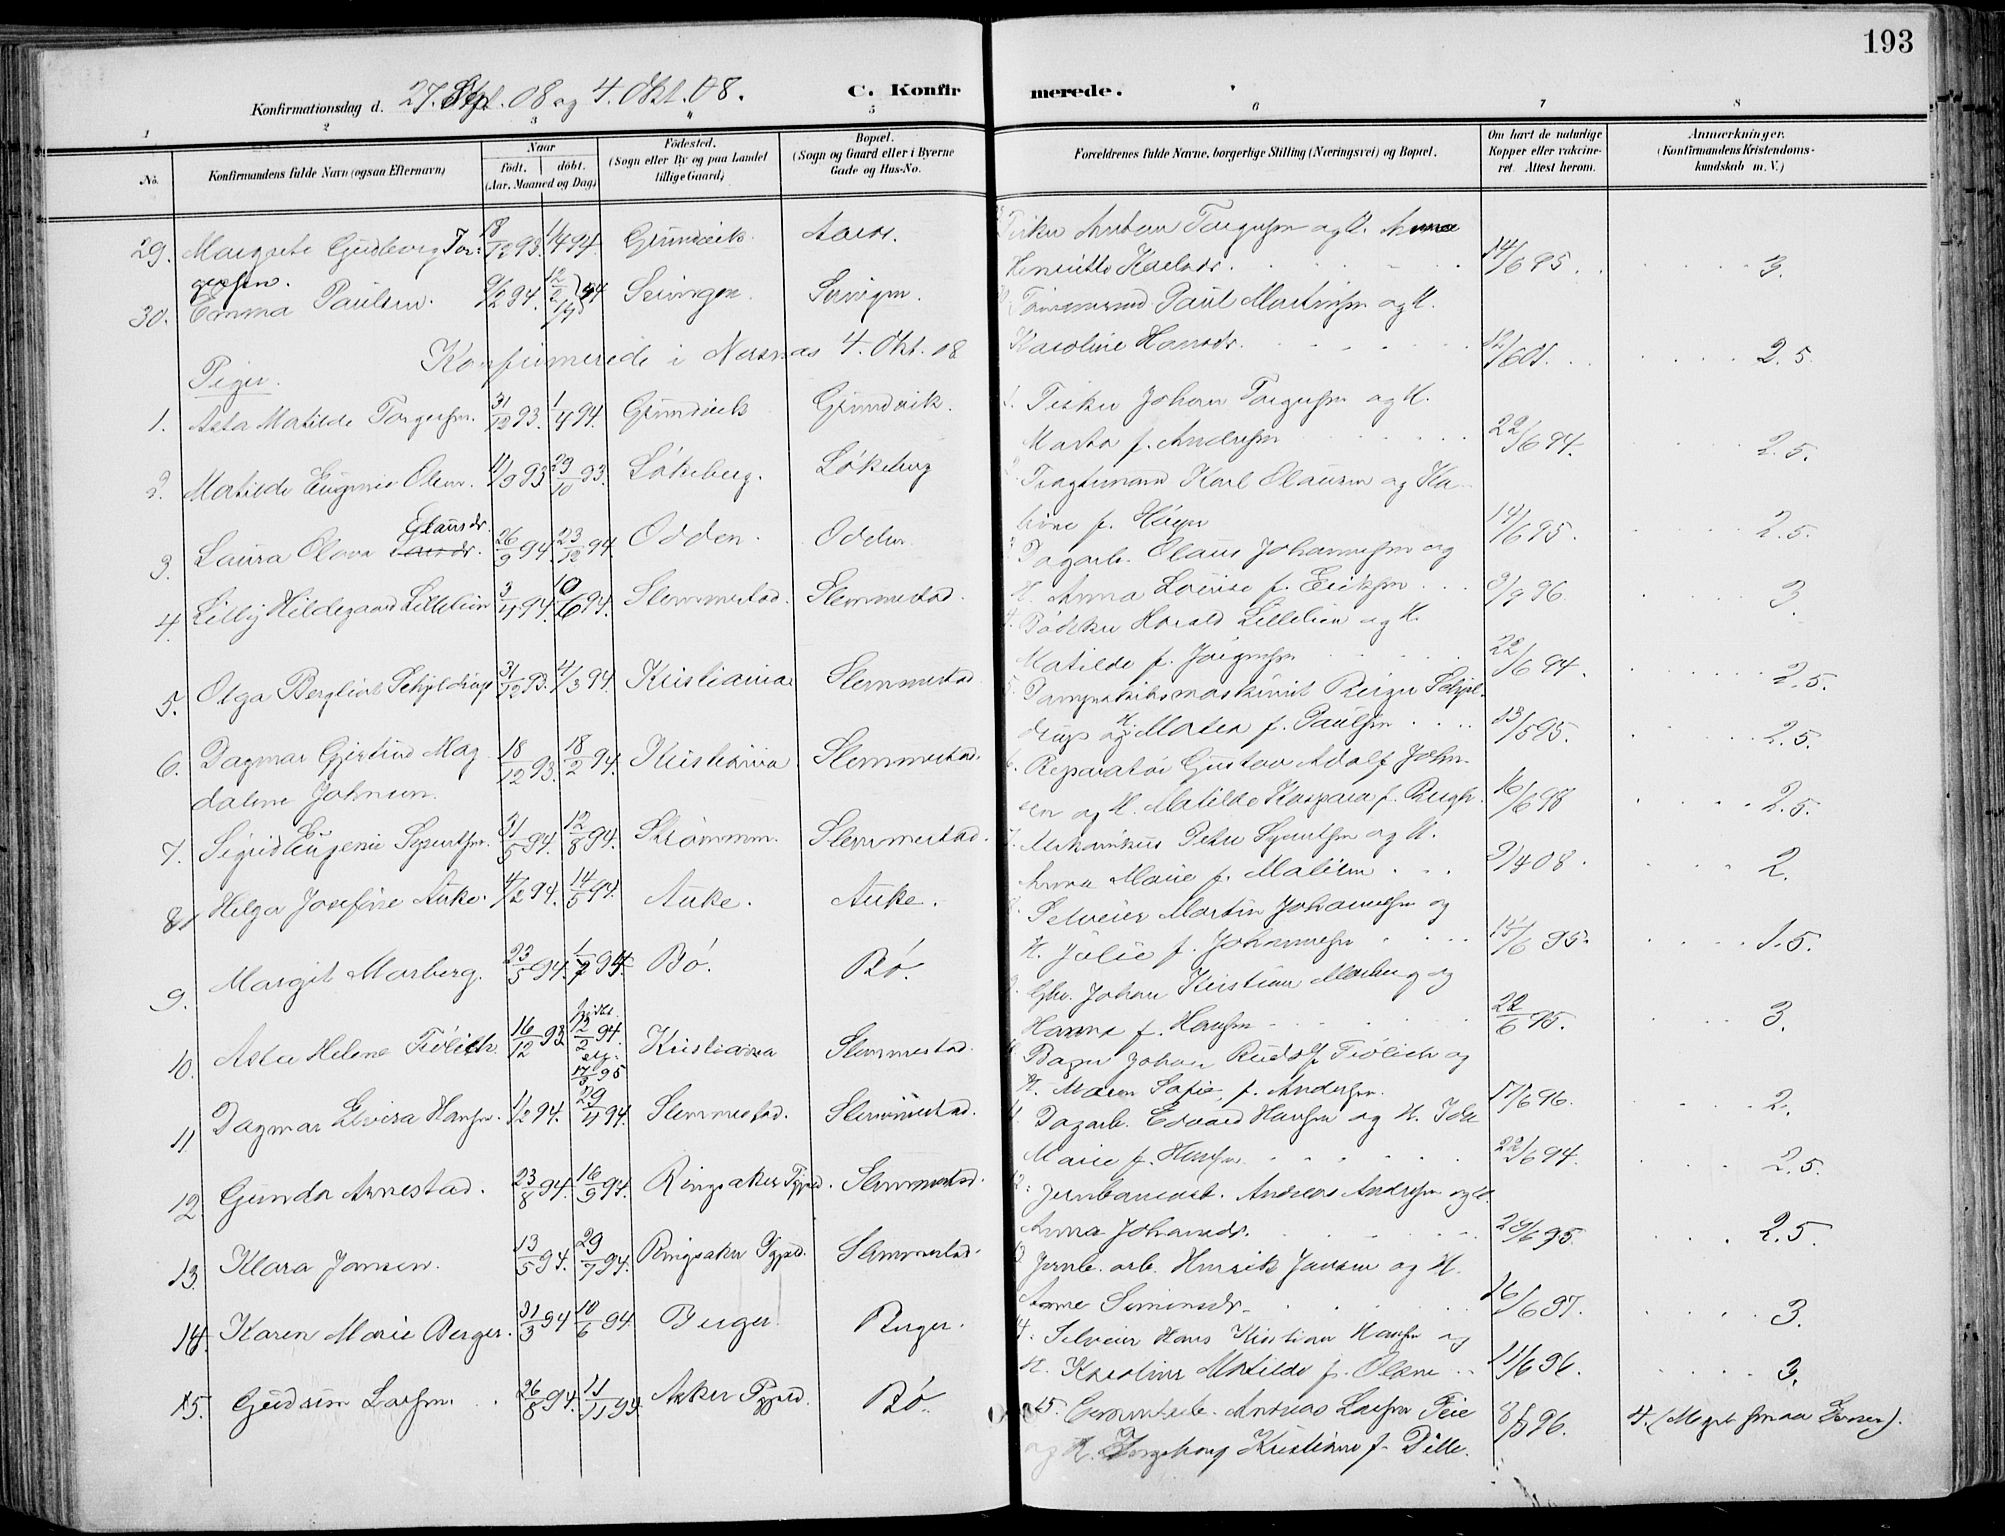 193
Konfirmationsdag d. 27. Sept. 08 og 4. Okt. 08. C. Konfirmerede.
1 2 3 4 5 6 7 8
No. Konfirmandens fulde Navn (ogsaa Efternavn) Naar født, døbt. (Aar, Maaned og Dag) Fødested. (Sogn eller By og paa Landet tillige Gaard) Bopæl. (Sogn og Gaard eller i Byerne Gade og Hus-No. Forældrenes fulde Navne, borgerlige Stilling (Næringsvei) og Bopæl. Om havt de naturlige Kopper eller vakcineret. Attest herom. Anmærkninger. (Konfirmandens Kristendomskundskab m. V.)
29. Margrete Gudborg Torgersen. 18/12 93. 1/4 94. Grundvik. Aaros. Fisker Anton Torgersen og H. Anna
Henriette Karlsdr. 14/6 95. 3.
30. Emma Paulsen. 9/2 94. Seivingen. Paul Martinsen og H.
Karoline Hansdr. 12/6 01. 2.5.
Piger. Konfirmerede i Nersnes 4. Okt. 08
1. Asta Matilde Torgersen. 31/12 93. 1/4 94. Grundvik Grundvik. 1. Fisker Johan Torgersen og H.
Marta f. Andersen 22/6 94. 2.5.
2. Matilde Eugenie Olsen. 11/9 93 29/10 93. Løkeberg. Løkeberg Fragtemand Karl Olausen og Kathrine f. 14/6 95. 2.5.
3. Laura Olava Olausdr. 26/9 94. 23/12 94 Odden. Odden. Dagarb. Olaus Johannesen og
H. Anna Lovise f. Eriksen 3/9 96. 3.
4. Lilly Hildegaard Lillelien 3/4 94. 10/6 94. Slemmestad. Slemmestad. 4. Bødker Harald Lillelien og H.
Matilde f. Jørgensen 22/6 94. 2.5.
5. Olga Bergliot Schjeldrup 31/12 93. 4/3 94. Kristiania Slemmestad 5. Schjeldrup og H. Martea f. Paulsen 13/5 95. 2.5.
6. Dagmar Gjertine Magdalene Johnsen. 18/12 93. 18/2 94. Kristiania Slemmestad. 6. Reparatør Gustav Adolf Johnsen og H. Matilde Kaspara f. 16/6 98 2.5.
7. Sigrid Eugenie Syvertsen. 31/5 94. 12/8 94. Strømmen. Slemmestad. 7. Petter Syvertsen og H.
Anna Marie f. 9/4 08. 2.
8. Helga Josefine Auke. 4/2 94. 14/5 94. Auke. Auke. Selveier Martin Johannesen og
H. Julie f. Johannesen 15/6 95. 1.5.
9. Margit Morberg. 23/5 94. 1/7 94. Bø. Bø. Gbr. Johan Kristian Morberg og
Hanna f. Hansen 22/6 95. 3.
10. Asta Helene Frölich. 16/12 93 12/2 94. 17/3 95 Kristiania Slemmestad. Bager Johan Rudolf Frölich og
H. Maren Sofie f. Andersen. 17/6 96. 2.
11 Dagmar Elvira Hansen. 1/2 94. 29/4 94. Slemmestad. Slemmestad. Dagarb. Edvard Hansen og H. Ida
Marie f. Hansen 22/6 94. 2.5.
12 Gunda Arnestad. 23/8 94. 16/9 94. Ringsaker Pgjeld. Slemmestad. 12. Andreas Andersen og H.
Anna Johansdr. 20/6 95. 2.5.
13 Klara Jansen. 13/5 94. 29/7 94. Ringsaker Pgjeld. Slemmestad. Jernb. arb. Henrik Jansen og H.
Anne Simensdr. 16/6 97. 3.
14. Karen Marie Berger. 31/3 94 10/6 94 Berger. Berger. 14. Selveier Hans Kristian Hansen og
H. Karoline Matilde f. Olsen 11/6 96. 3.
15. Gudrun Larsen. 26/8 94. 11/11 94. Asker Pgjeld. Bø. 15. Andreas Larsen
og H. Ingeborg Kristiane f. Dille. 96. 4. (Meget smaa Evner).